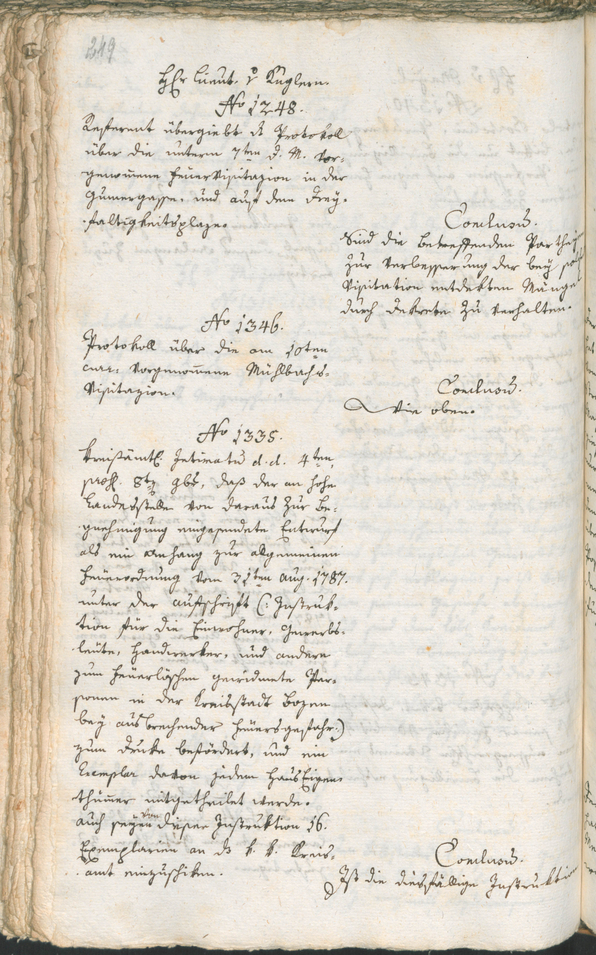 249
HEr Lieut. v Kuglern.
No 1248.
Referent übergiebt ds Protokoll
über die unterm 7ten d. M. vor-
genommene Feuervisitazion in der
Gumergasse, und auf dem Drey-
faltigkeitsplaze.
Conclusũ.
Sind die betreffenden Partheyen
zur Verbesserung der bey
Visitation entdekten Mängel
durch Dekrete zu verhalten.
No 1346.
Protokoll über die am 10ten
cur: vorgenommene Mühlbachs-
visitazion.
Conclusũ.
Wie oben.
No 1335.
Kreisämtl. Intimatũ d. d. 4ten,
prs. 8ten 9bs, daß der an hohe
Landesstelle von daraus zur Be-
gnehmigung eingesendete Entwurf
als ein Anhang zur allgemeinen
Feuerordnung vom 31ten Aug. 1787.
unter der Aufschrift (: Instruk-
tion für die Einwohner, Gewerbs-
leute, Handwerker, und andere
zum Feuerlöschen gewidmete Per-
sonen in der Kreisstadt Bozen
bey ausbrechender Feuersgefahr:)
zum Druke befördert, und ein
Exemplar davon jedem HausEigen-
thümer mitgetheilet werde.
auch seyen von dieser Instruktion 16.
Exemplarien an ds k. k. Kreis-
amt einzuschiken.
Conclusũ.
Ist die diesfällige Instruktion